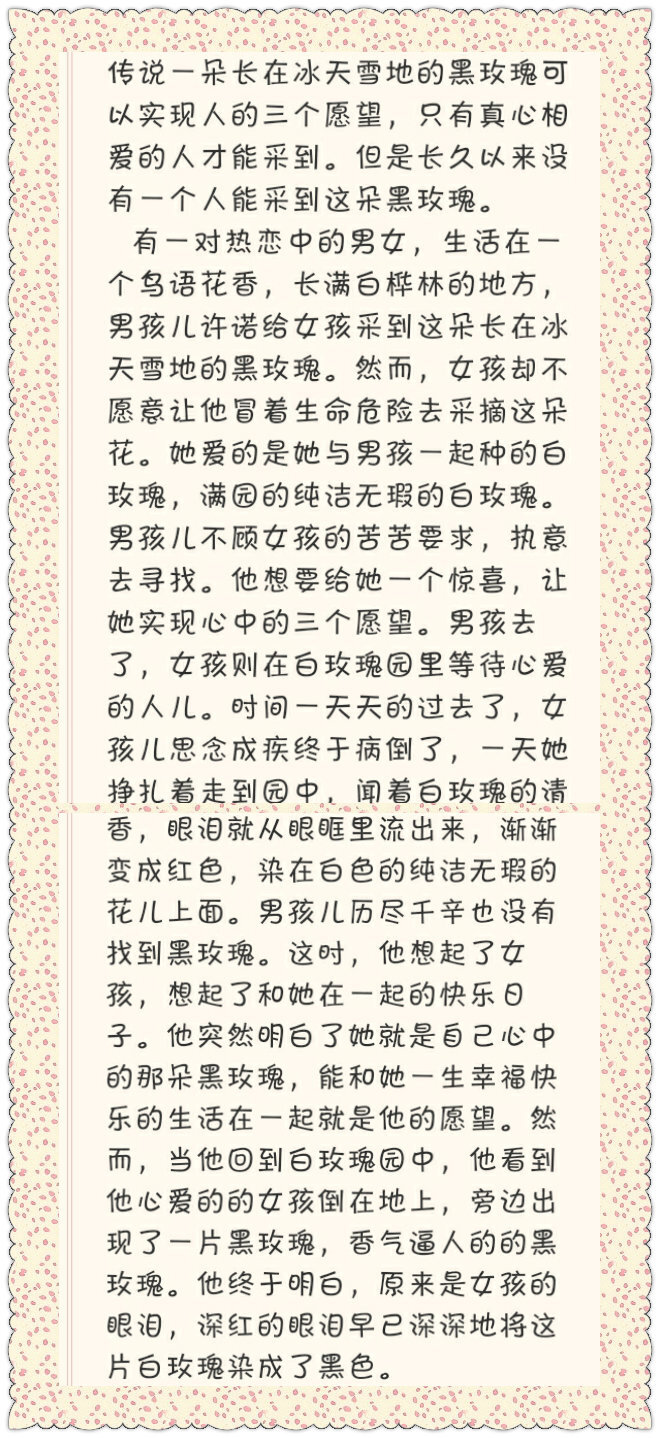 传说一朵长在冰天雪地的黑玫瑰可
以实现人的三个愿望，只有真心相
爱的人才能采到。但是长久以来没
有一个人能采到这朵黑玫瑰。
有一对热恋中的男女，生活在一
个鸟语花香，长满白桦林的地方，
男孩儿许诺给女孩采到这朵长在冰
天雪地的黑玫瑰。然而，女孩却不
愿意让他冒着生命危险去采摘这朵
花。她爱的是她与男孩一起种的白
玫瑰，满园的纯洁无瑕的白玫瑰。
男孩儿不顾女孩的苦苦要求，执意
去寻找。他想要给她一个惊喜，让
她实现心中的三个愿望。男孩去
了，女孩则在白玫瑰园里等待心爱
的人儿。时间一天天的过去了，女
孩儿思念成疾终于病倒了，一天她
挣扎着走到园中，闻着白玫瑰的清
香，眼泪就从眼眶里流出来，渐渐
变成红色，染在白色的纯洁无瑕的
花儿上面。男孩儿历尽千辛也没有
找到黑玫瑰。这时，他想起了女
孩，想起了和她在一起的快乐日
子。他突然明白了她就是自己心中
的那朵黑玫瑰，能和她一生幸福快
乐的生活在一起就是他的愿望。然
而，当他回到白玫瑰园中，他看到
他心爱的的女孩倒在地上，旁边出
现了一片黑玫瑰，香气逼人的的黑
玫瑰。他终于明白，原来是女孩的
眼泪，深红的眼泪早已深深地将这
片白玫瑰染成了黑色。